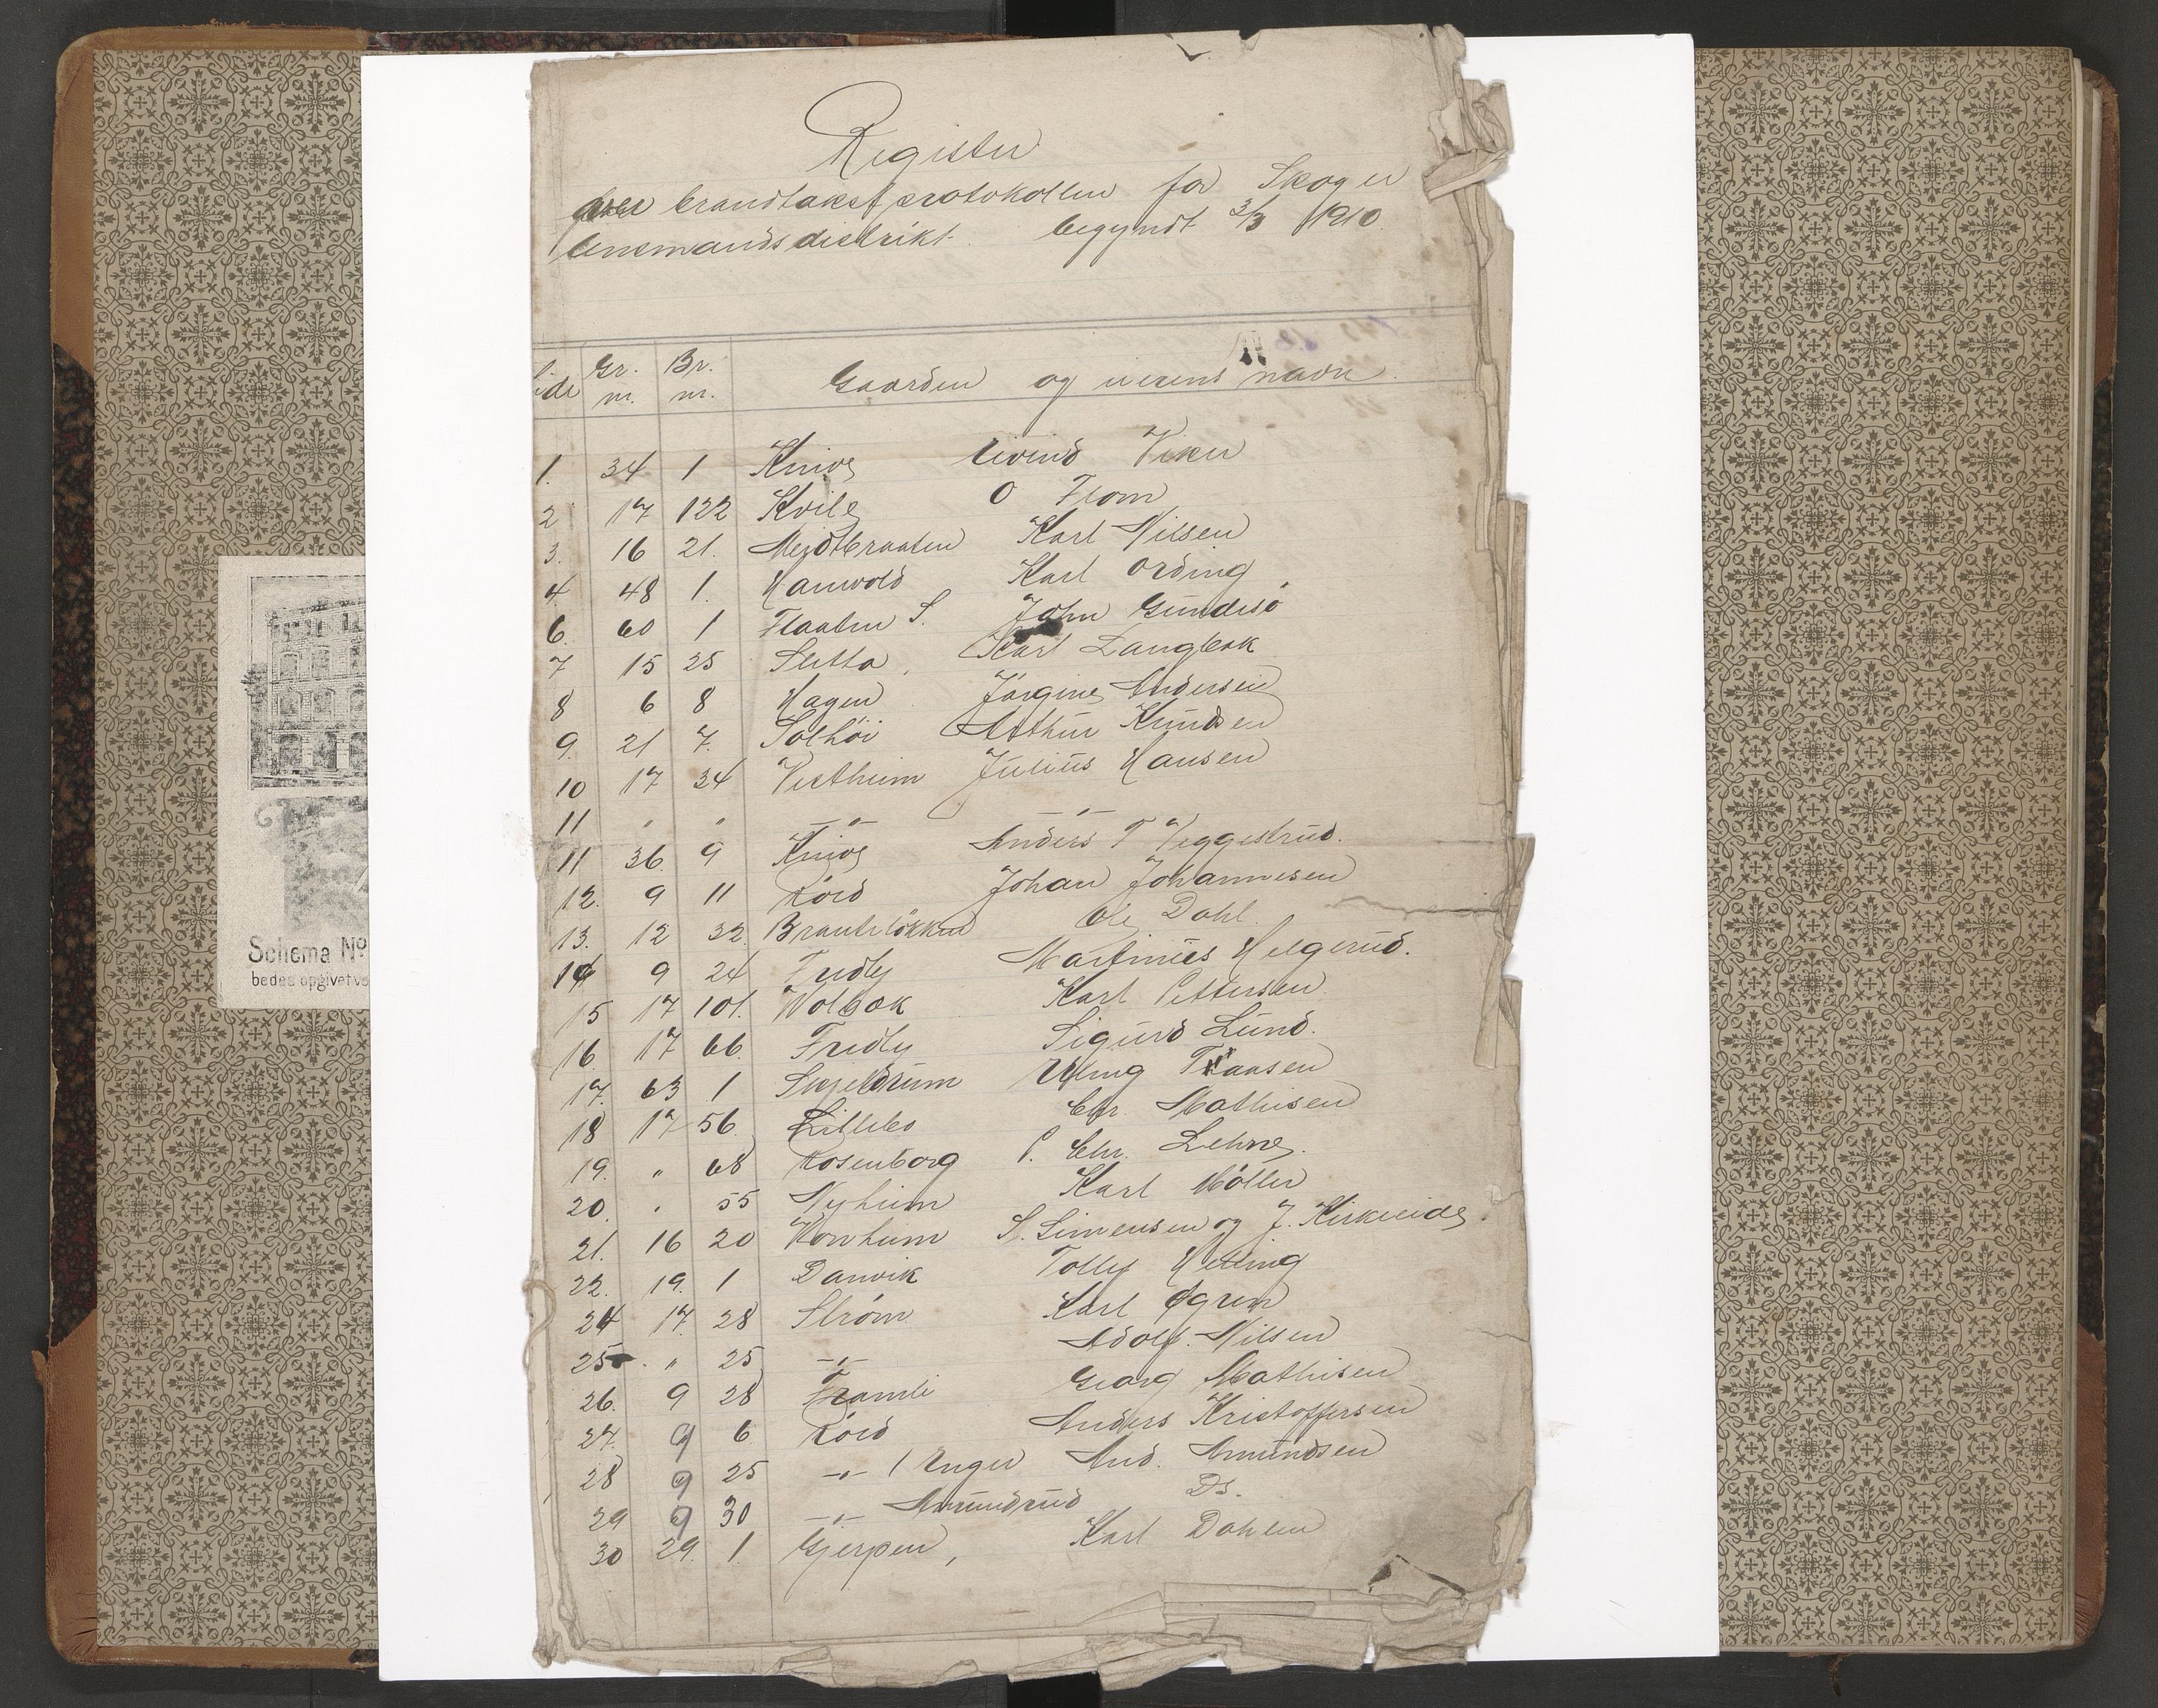 Register
over brandtakstprotokollen for Skoger
lensmandsdistrikt. begyndt 3/3 1910.
Gr. nr. Br. nr. Gaarden og eierens navn.
1. 34 1 Knive Eivind Viker
2 17 122 Kvile O Flom
3. 16 21. Meidtbraaten Karl Nilsen
4. 48 1. Hanvold Karl Ording
6. 60 1 Flaaten S. John Gundesø
7 15 25 Sletta, Karl Langbak
8 6 8 Hagen Jörgine Andersen
9. 21 7. Solhöi Arthur Knudsen
10 17 34 Vestheim Julius Hansen
11 " " —"— —"—
11 36. 9 Knive Anders T Veggestrud.
12. 9 11 Röed Johan Johannesen
13. 12 32. Brænteløkken Ole Dahl.
14 9 24 Fredly Martinius Helgerud.
15 17 101. Wolbak Karl Pettersen
16. 17 66. Fredly Sigurd Lund.
17. 63 1 Skjeldrum Elling Traasen
18 17 56. Lillebo Chr. Mathisen
19. " 68 Rosenborg P. Chr. Lehne.
20. " 55 Nyheim Karl Möller
21. 16 20 Kornheim S. Simensen og J. Kirkeeide.
22. 19. 1 Danvik Tollef Helling
24 17. 28 Strøm Karl Ögren
25 . " 25 —"— Adolf. Nilsen
26. 9 28 Framli Georg Mathisen
27. 9 6 Röed Anders Kristoffersen
28 9 25 —"— (Enger And. Amundsen
29 9 30 —"— Amundrud Do.
30 29. 1. Gjerpen, Karl Dahlen
Schema No
bedes opgivet ve